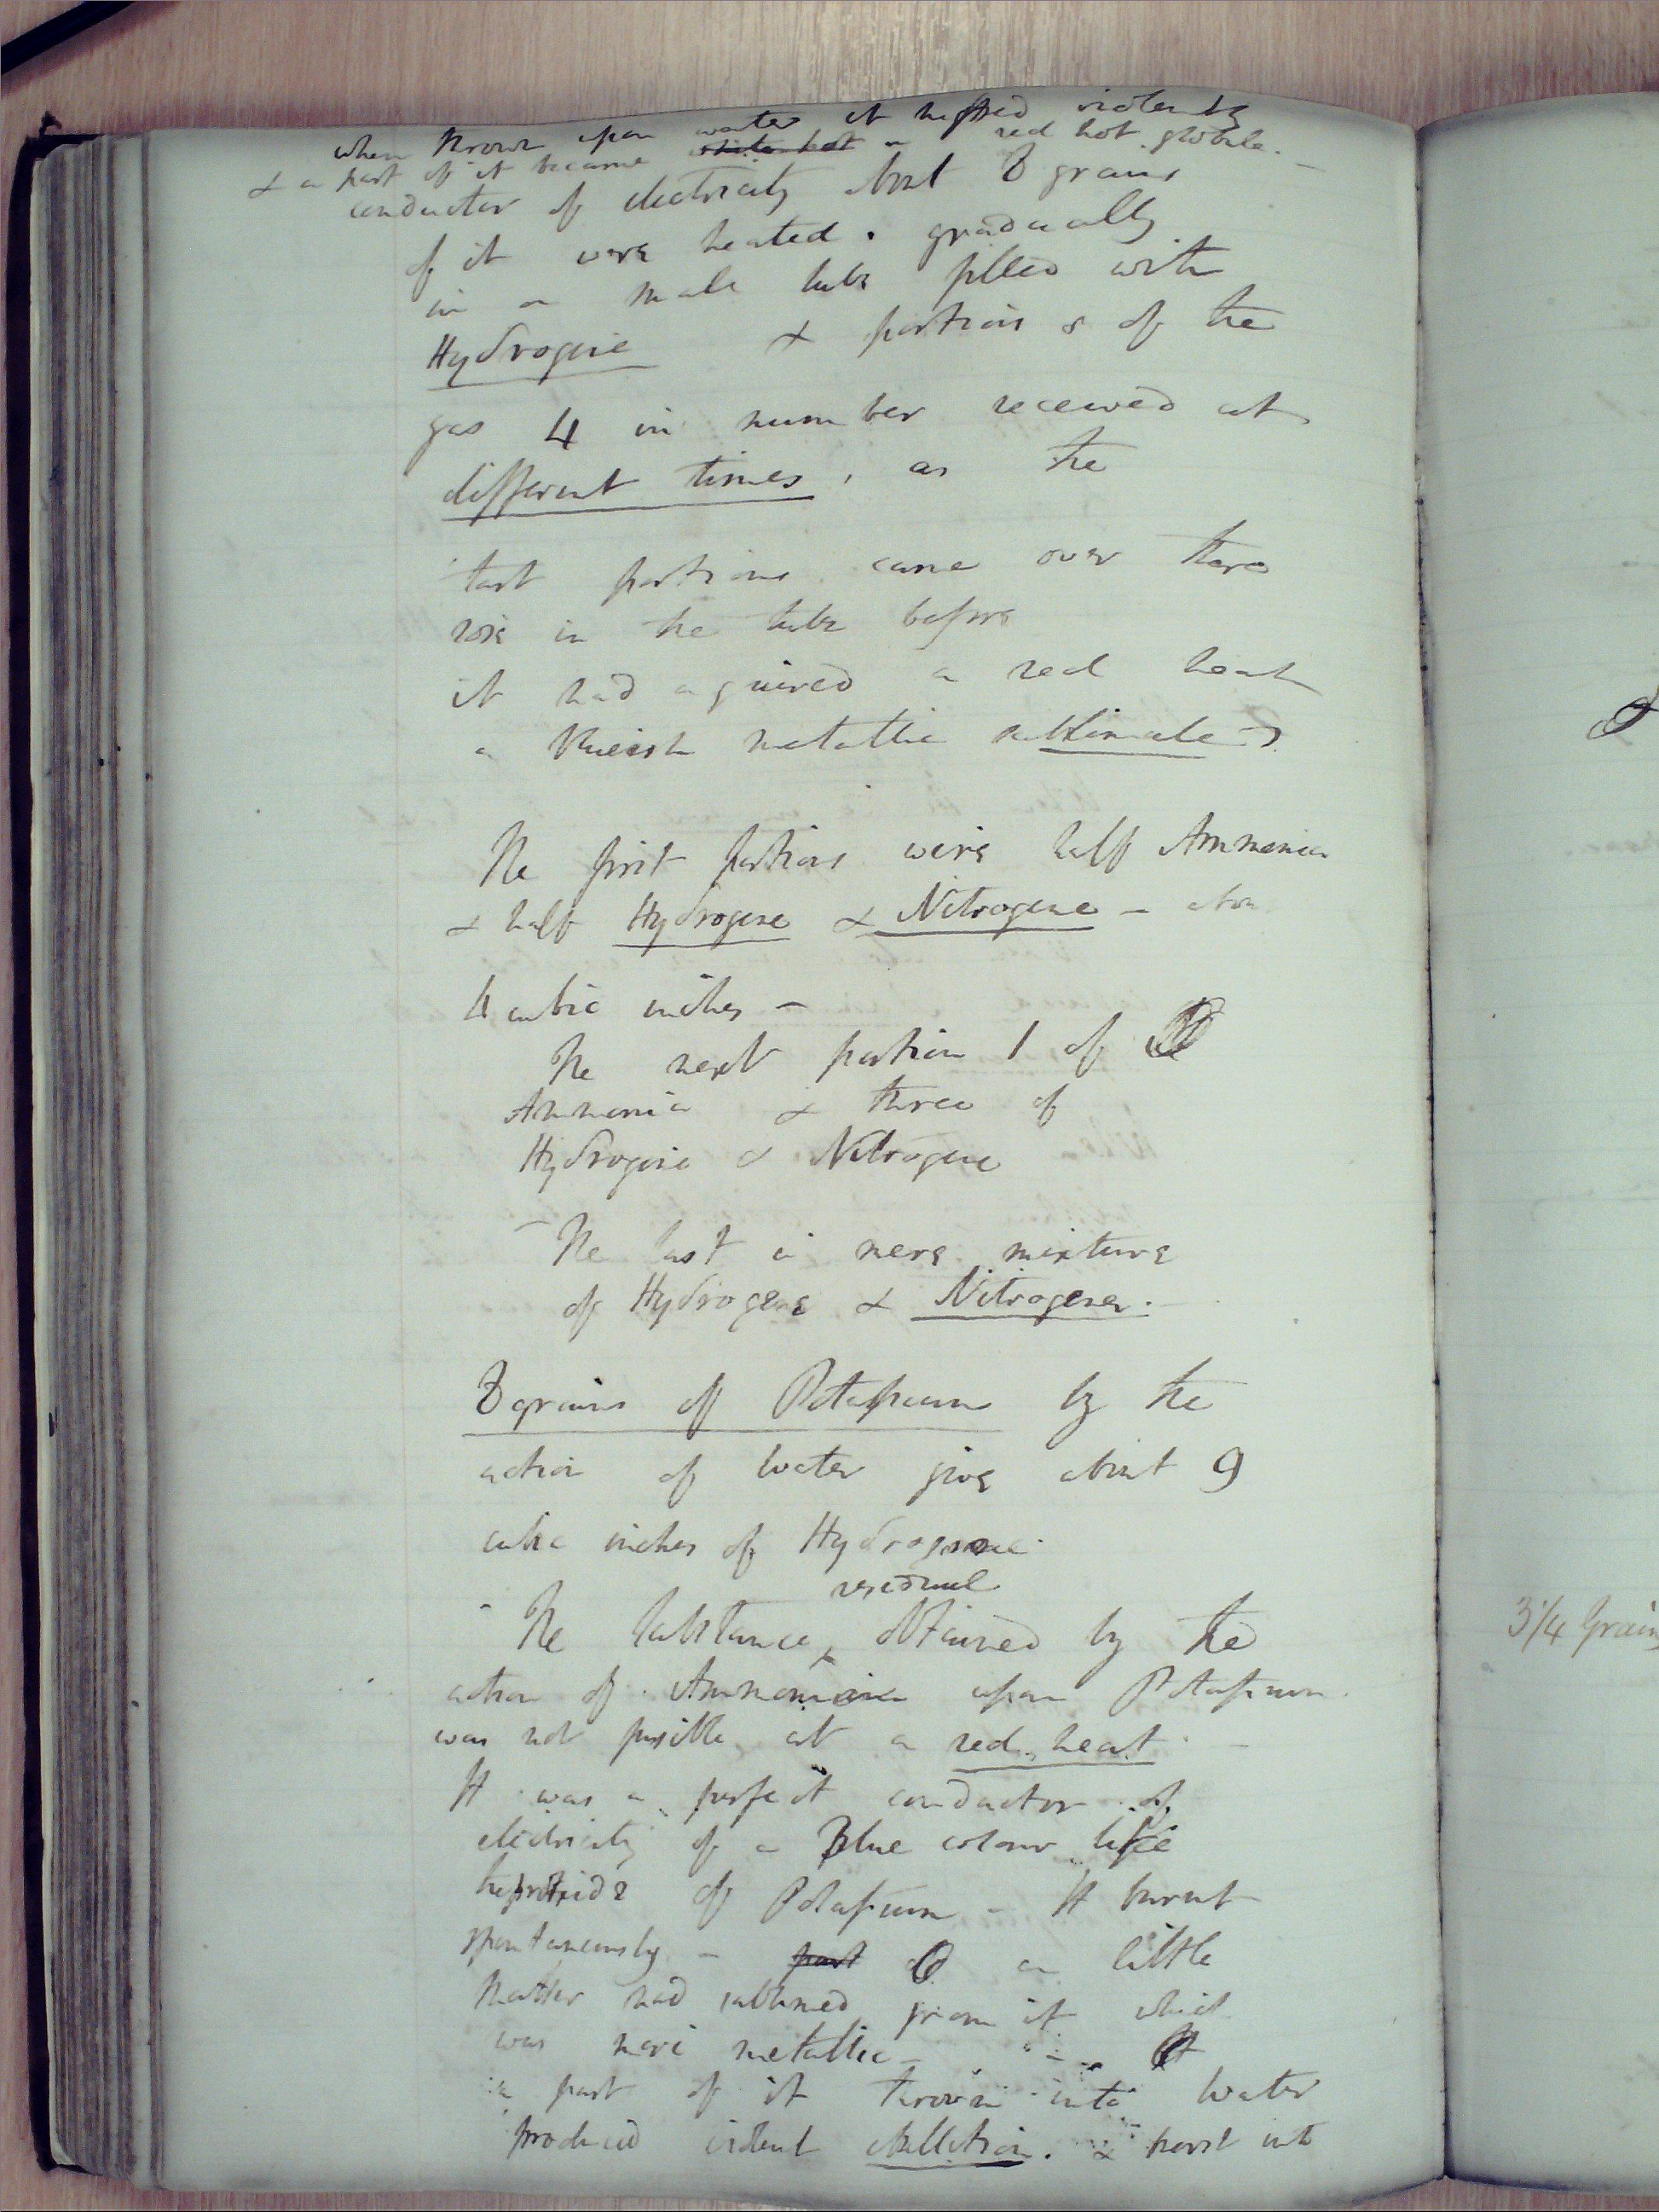 when thrown upon water it hissed violently
& a part of it became white hot a red hot globule. -
conductor of electricity about 8 grains
of it were heated. gradually
in a small tube filled with
Hydrogene & portions of the
gas 4 in number received at
different times, as the
last portions came over there
rose in the tube before
it had aquired a red heat
a blueish metallic sublimate
The first portions were half Ammonia
& half Hydrogene & Nitrogene -
4 cubic inches -
The next portion 1 of
Ammonia & three of
Hydrogene & Nitrogene
- The last a mere mixture
of Hydrogene & Nitrogene.
8 grains of Potassium by the
action of water give about 9
cubic inches of Hydrogene.
residual
- The substance obtained by the
action of Ammonia upon Potassium
was not fusible at a red heat -
It was a perfect conductor of
electricity of a Blue colour like
the protoxide of Potassium - It burnt
spontaneously - part a little
matter had sublimed from it which
was more metallic -
a part of it thrown into water
produced violent ebullition. & burst into
3 1/4 Grains